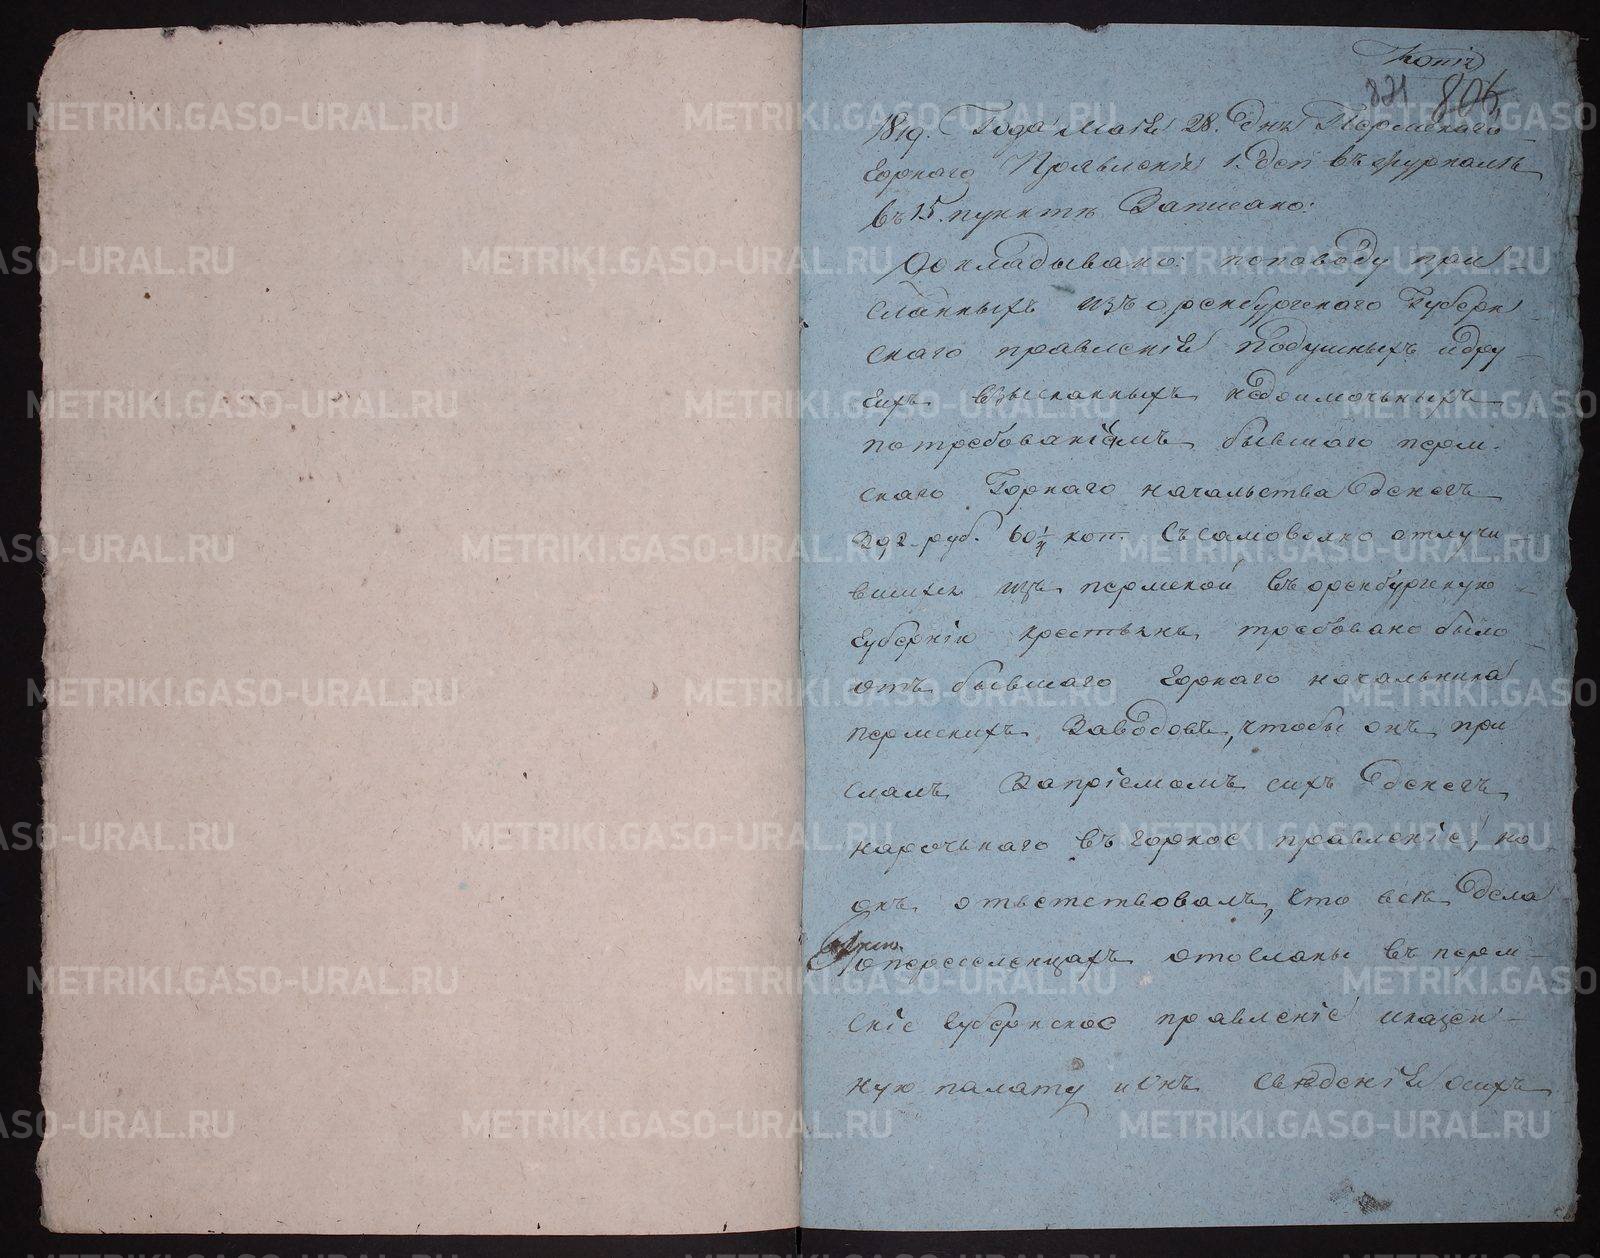 Копія
821 806
1819. Года Маія 28. дня Пермскаго
Горнаго Правленія 1. Деп въ журналѣ
въ 15. пунктѣ Записано:
Докладывано: поповоду при
сланныхъ изъ оренбургскаго Губерн
скаго правленія подушныхъ идру
гихъ взысканныхъ недоимочьныхъ
потребованіямъ бывшаго перм-
скаго Горнаго начальства денегъ
292 руб. 60 1/4 коп. съ самовольно отлучи
вшихся изъ пермской въ оренбургскую
губернію крестьянъ, требовано было
отъ бывшаго горнаго начальника
пермскихъ Заводовъ, чтобы онъ при
слалъ Запріемомъ сихъ денегъ
нарочьнаго въ горное правленіе, но
онъ отвѣтствовалъ, что всѣ дела
опереселенцахъ отосланы въ перм-
скіе губернское правленіе иказен-
ную палату и онъ свѣденія осихъ
METRIKI.GASO-URAL.RU